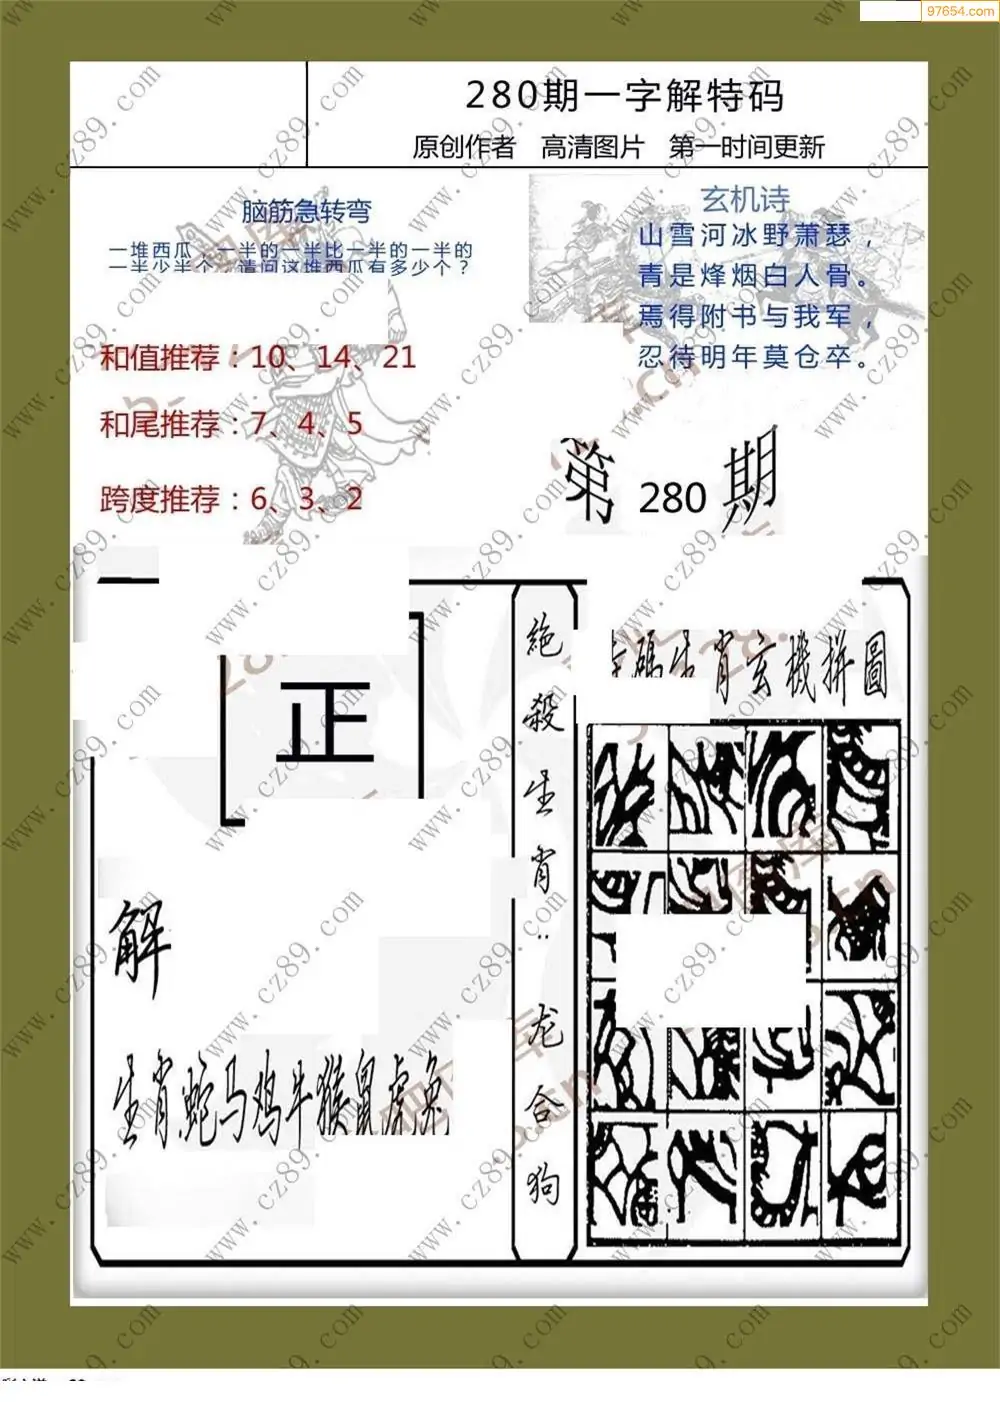 97654.com
280期一字解特码
原创作者 高清图片 第一时间更新
脑筋急转弯
一堆西瓜，一半的一半比一半的一半的
一半少半个，请问这堆西瓜有多少个？
玄机诗
山雪河冰野萧瑟，
青是烽烟白人骨。
焉得附书与我军，
忍待明年莫仓卒。
和值推荐：10、14、21
和尾推荐：7、4、5
跨度推荐：6、3、2
第 280 期
正
解
生肖蛇马鸡牛猴鼠虎兔
絶殺生肖：龙合狗
碼生肖玄機拼圖
www.cz89.com